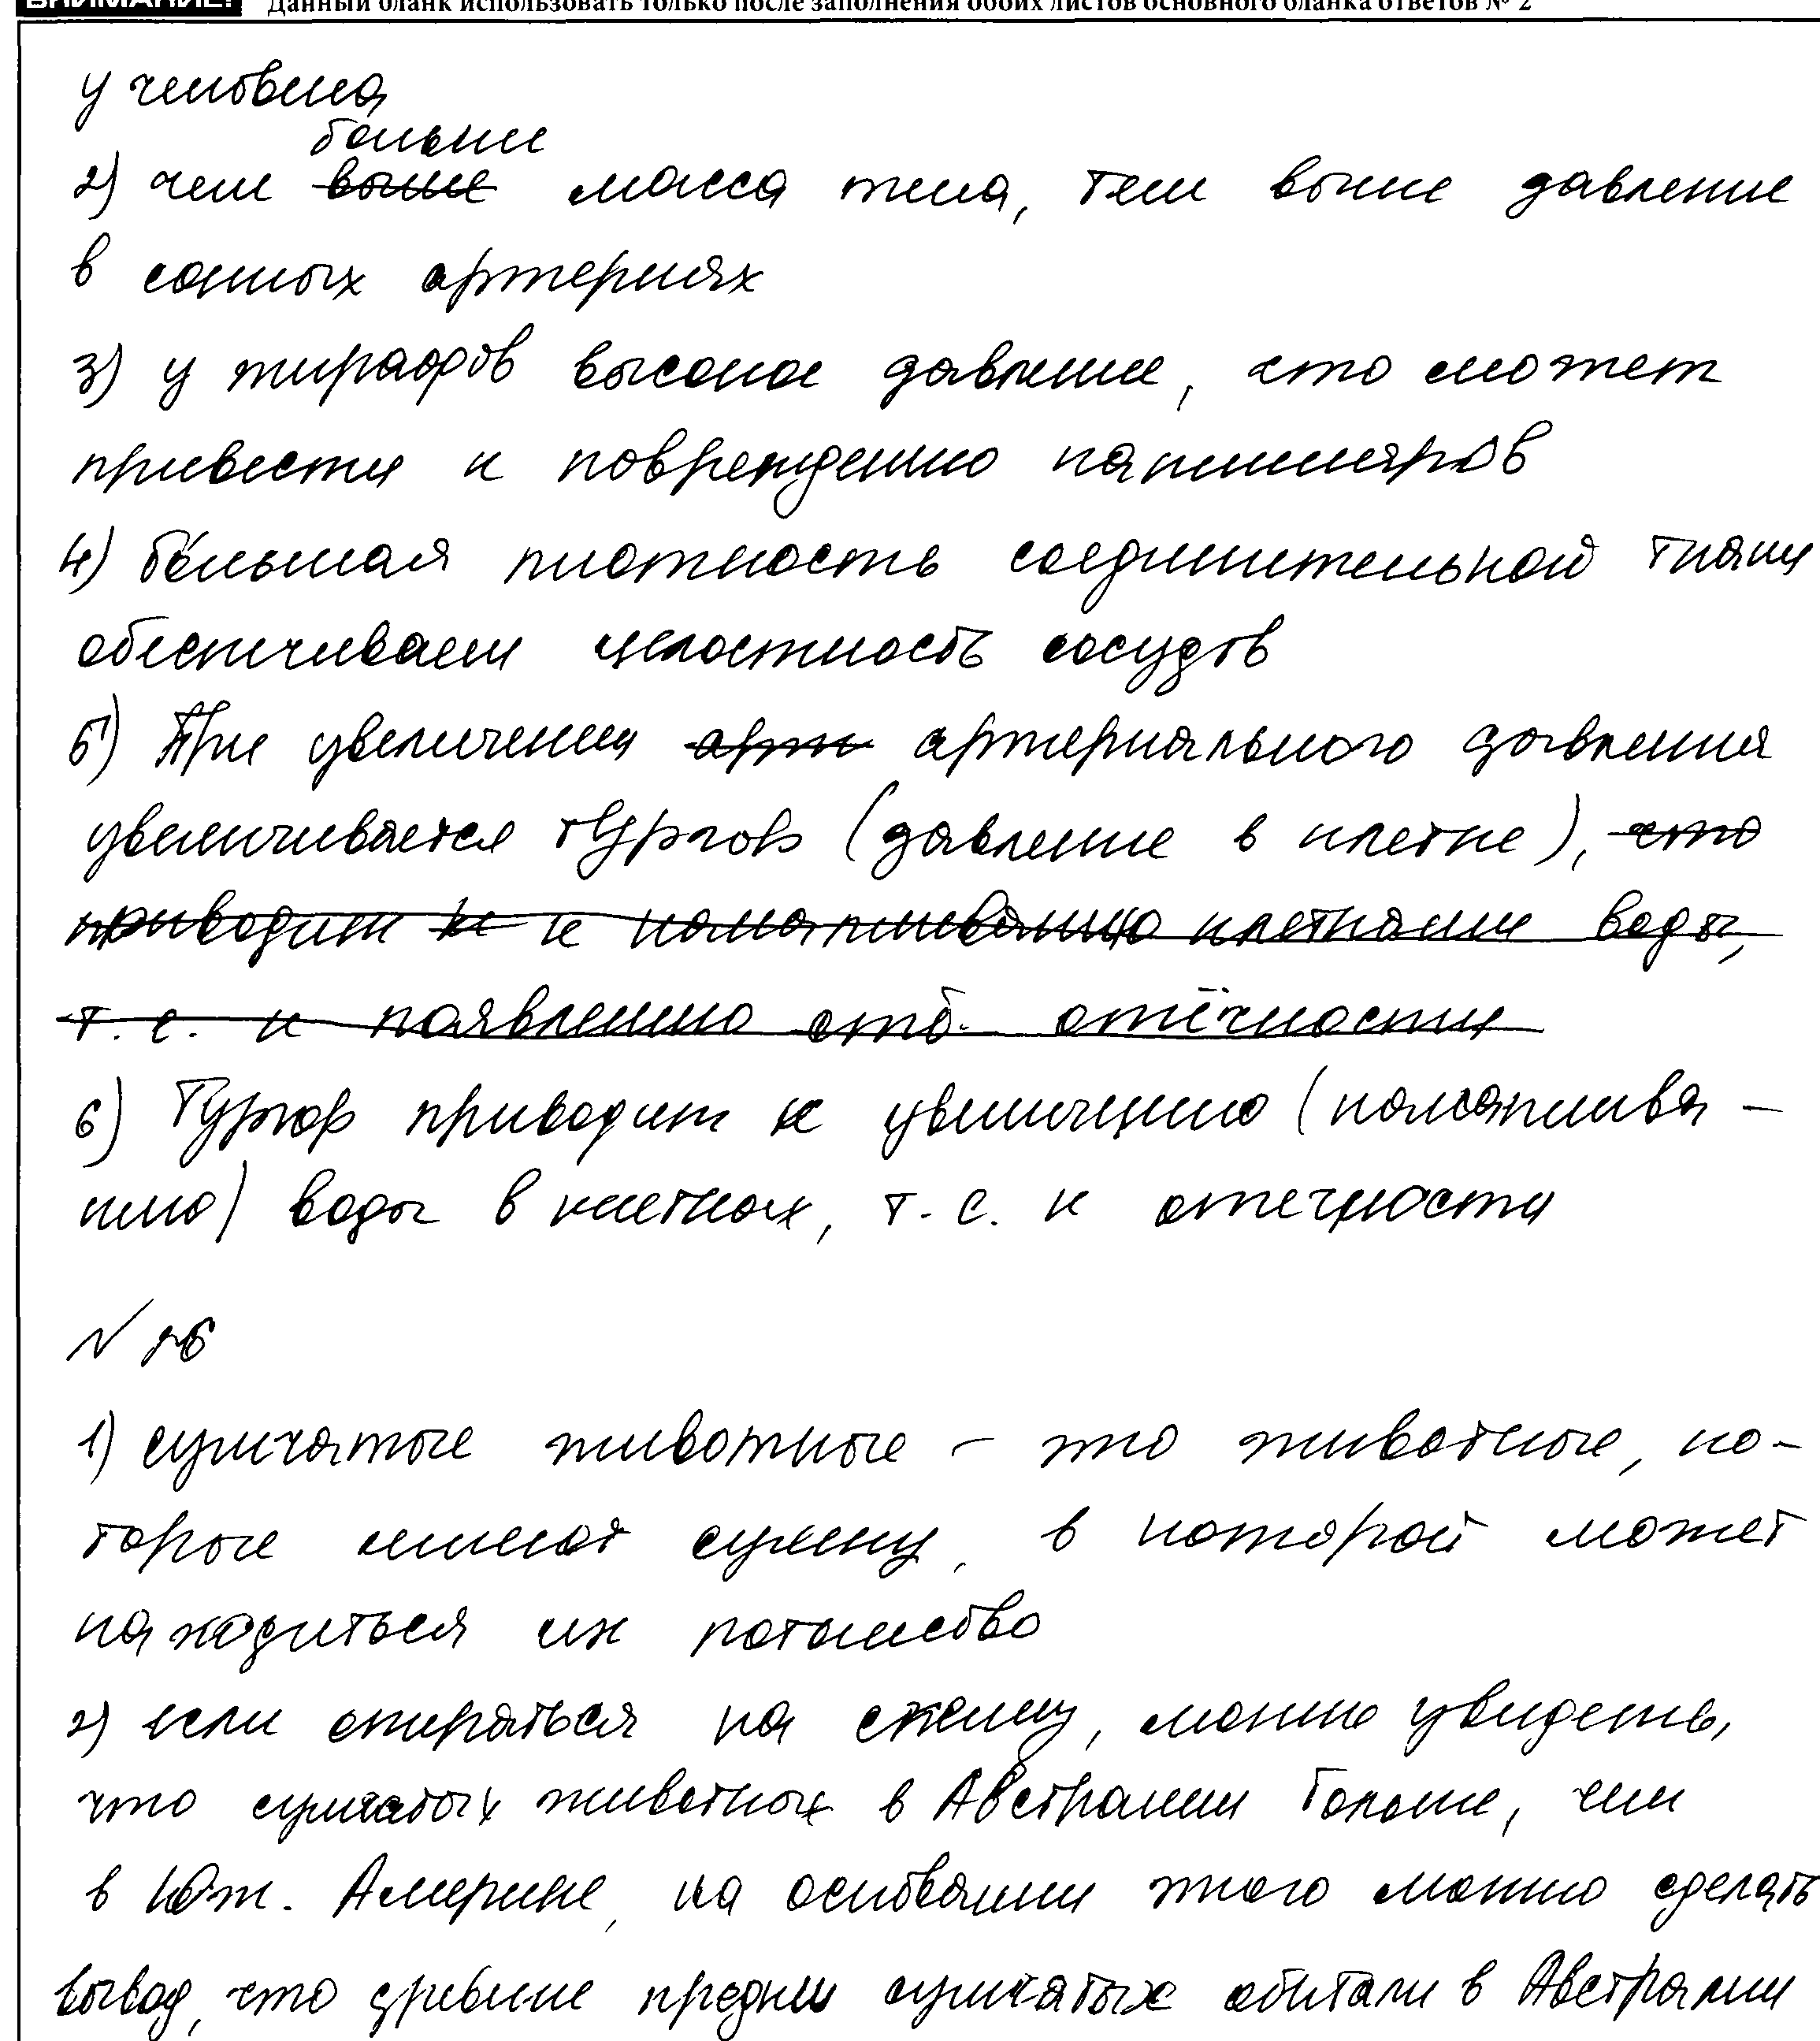 ВНИМАНИЕ! Данный бланк использовать только после заполнения обоих листов основного бланка ответов № 2
у человека
больше
2) чем ~~выше~~ масса тела, тем выше давление
в сонных артериях
3) у жирафов высокое давление, что может
привести к повреждению капилляров
4) большая плотность соединительной ткани
обеспечивает целостность сосудов
5) При увеличении ~~арте~~ артериального давления
увеличивается тургор (давление в клетке), ~~что~~
~~приводит к к накапливанию клетками воды,~~
~~т.е. к появлению отё отёчности~~
6) Тургор приводит к увеличению (накаплива-
нию) воды в клетках, т.е. к отечности
№ 26
1) сумчатые животные – это животные, ко-
торые имеют сумку, в которой может
находиться их потомство
2) если опираться на схему, можно увидеть,
что сумчатых животных в Австралии больше, чем
в Юж. Америке, на основании этого можно сделать
вывод, что древние предки сумчатых обитали в Австралии